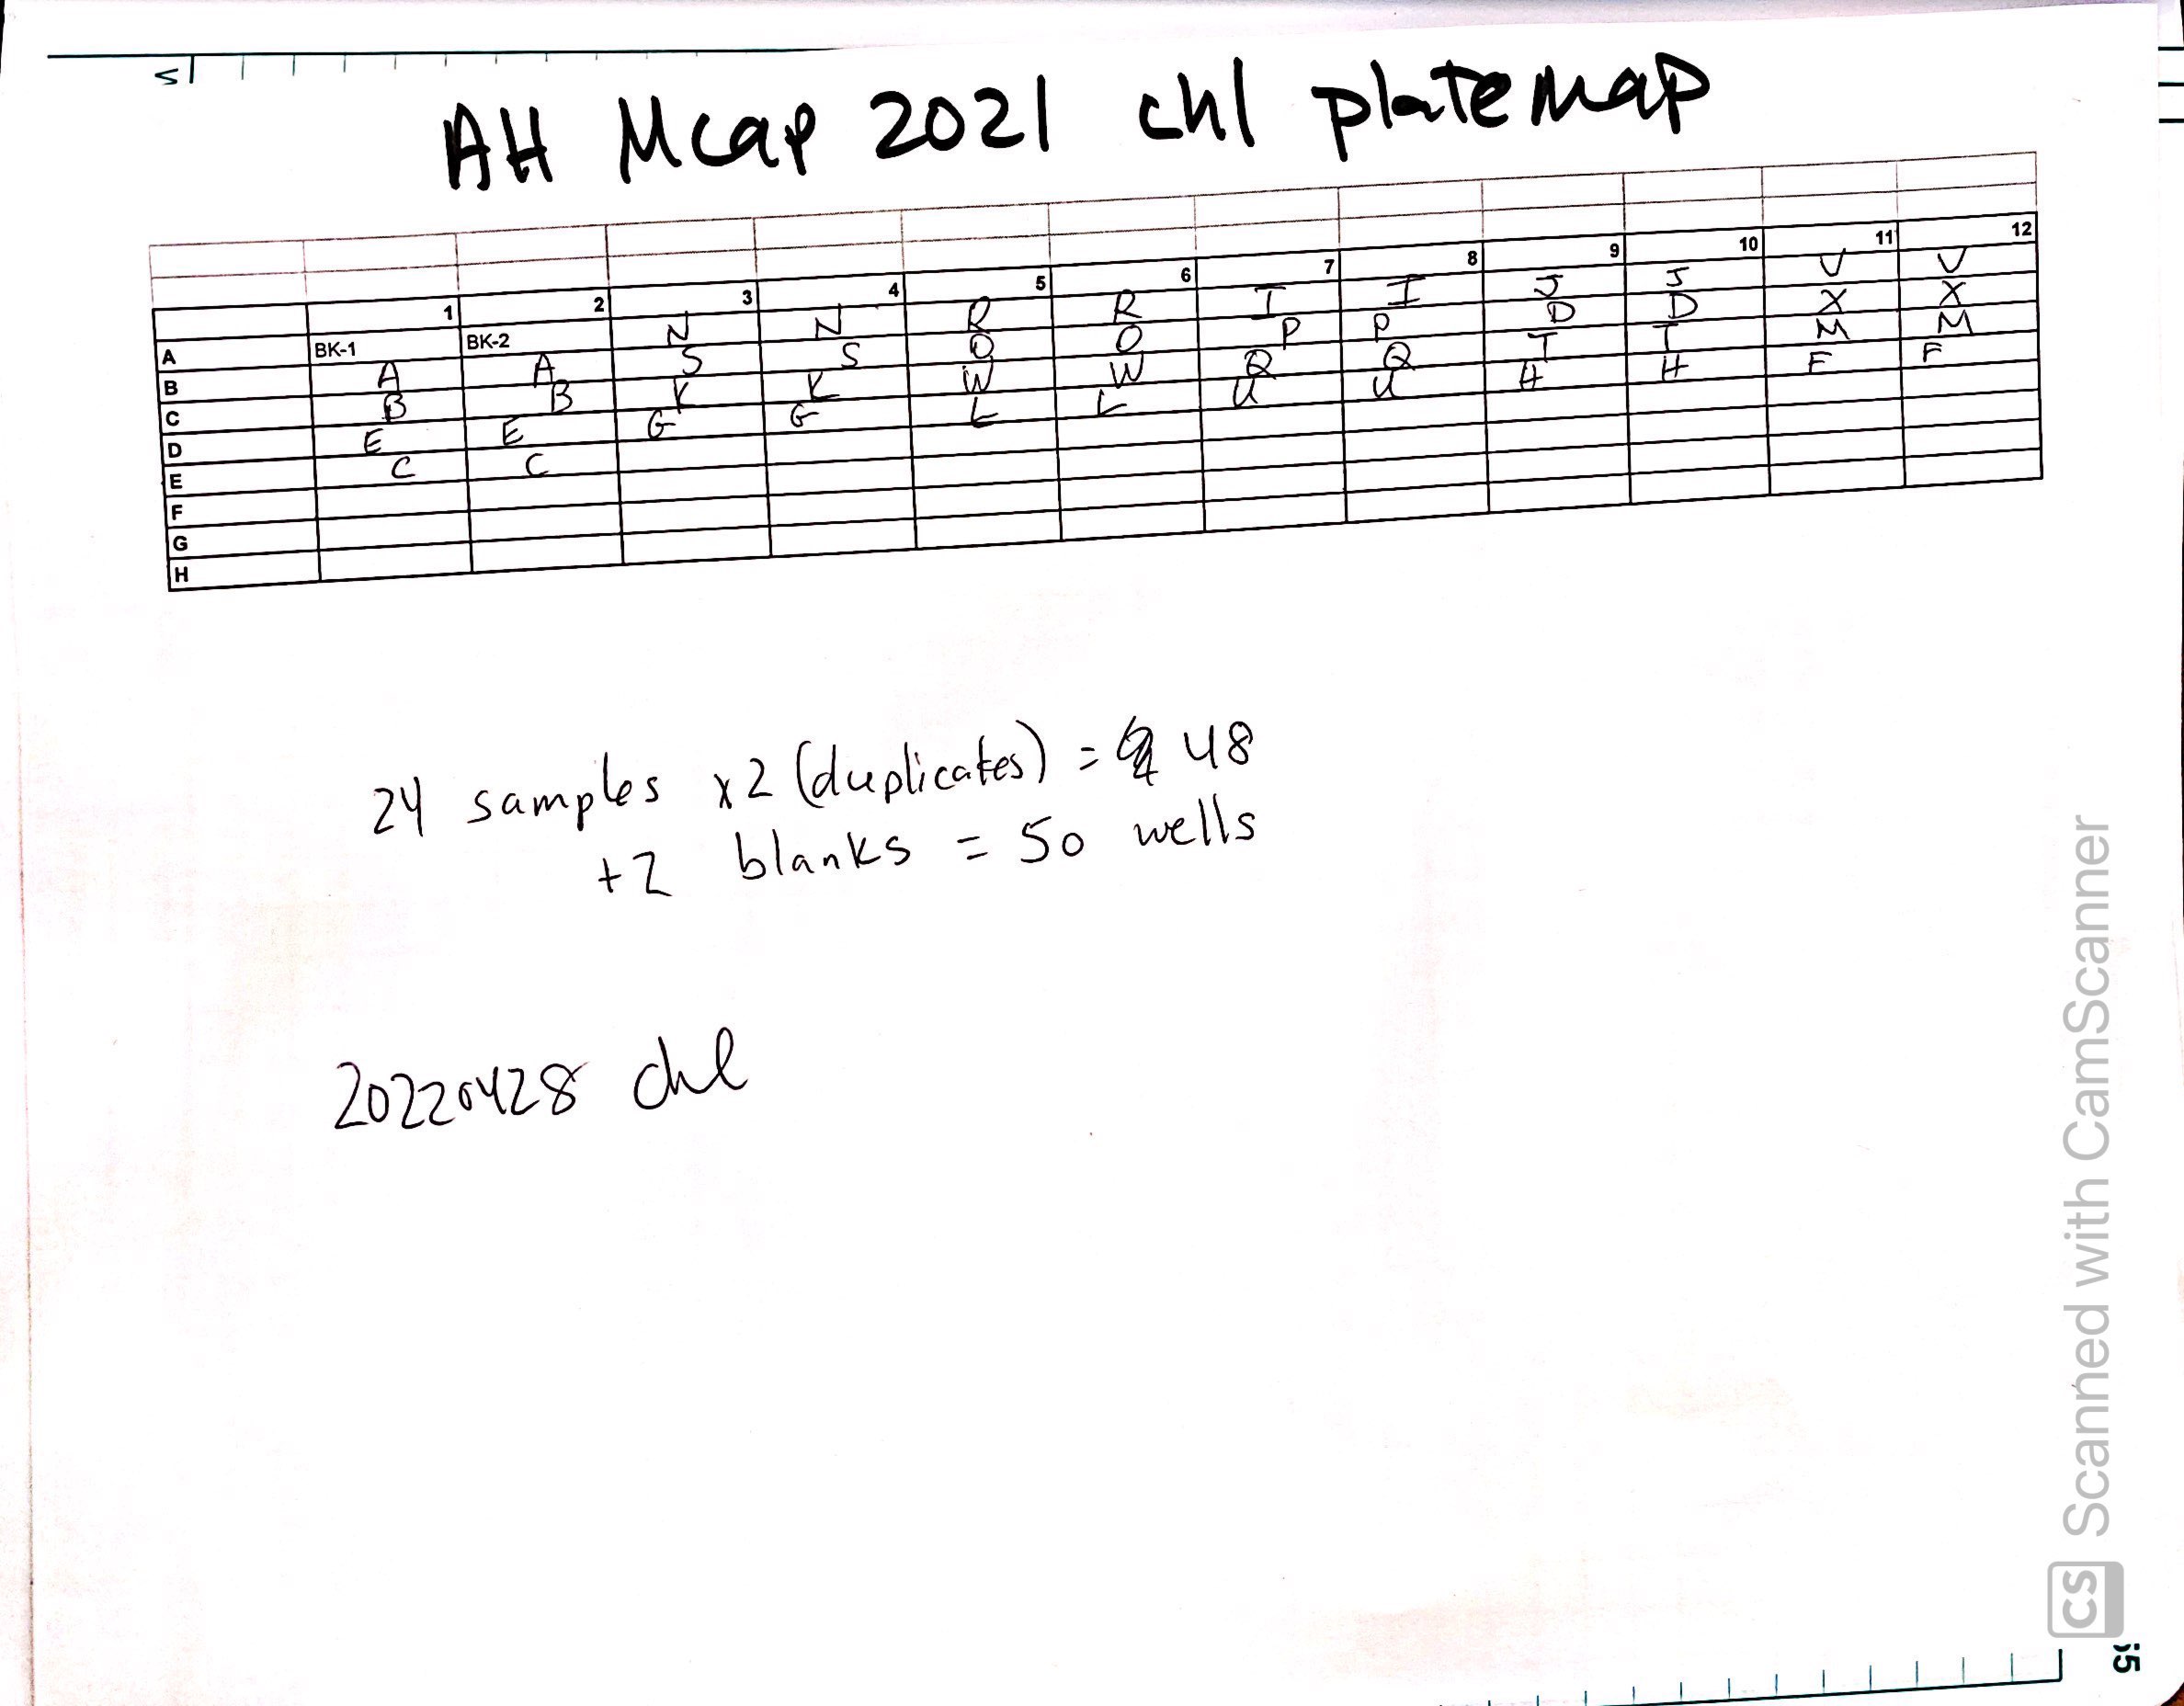 5
AH Mcap 2021 chl platemap
1 2 3 4 5 6 7 8 9 10 11 12
A BK-1 BK-2 N N R R I I J J V V
B A A S S O O P P D D X X
C B B K K W W Q Q T T M M
D E E G G L L U U H H F F
E C C
F
G
H
24 samples x2 (duplicates) = 48
+2 blanks = 50 wells
20220428 chl
CS Scanned with CamScanner